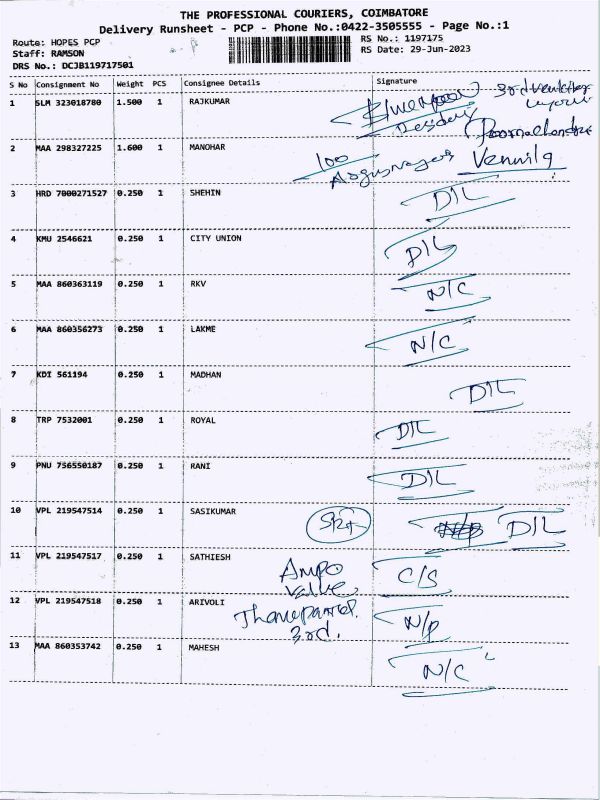 THE PROFESSIONAL COURIERS, COIMBATORE
Delivery Runsheet - PCP - Phone No.:0422-3505555 - Page No.:1
Route: HOPES PCP
RS No.: 1197175
Staff: RAMSON
RS Date: 29-Jun-2023
DRS No.: DCJB119717501
S No Consignment No Weight PCS Consignee Details Signature
1 SLM 323018780 1.500 1 RAJKUMAR
3rd
2 MAA 298327225 1.600 1 MANOHAR
100 Vennila
3 HRD 7000271527 0.250 1 SHEHIN D/L
4 KMU 2546621 0.250 1 CITY UNION D/L
5 MAA 860363119 0.250 1 RKV N/C
6 MAA 860356273 0.250 1 LAKME N/C
7 KDI 561194 0.250 1 MADHAN D/L
8 TRP 7532001 0.250 1 ROYAL D/L
9 PNU 756550187 0.250 1 RANI D/L
10 VPL 219547514 0.250 1 SASIKUMAR D/L
11 VPL 219547517 0.250 1 SATHIESH Ampo C/S
Valve,
12 VPL 219547518 0.250 1 ARIVOLI N/p
3rd.
13 MAA 860353742 0.250 1 MAHESH N/C